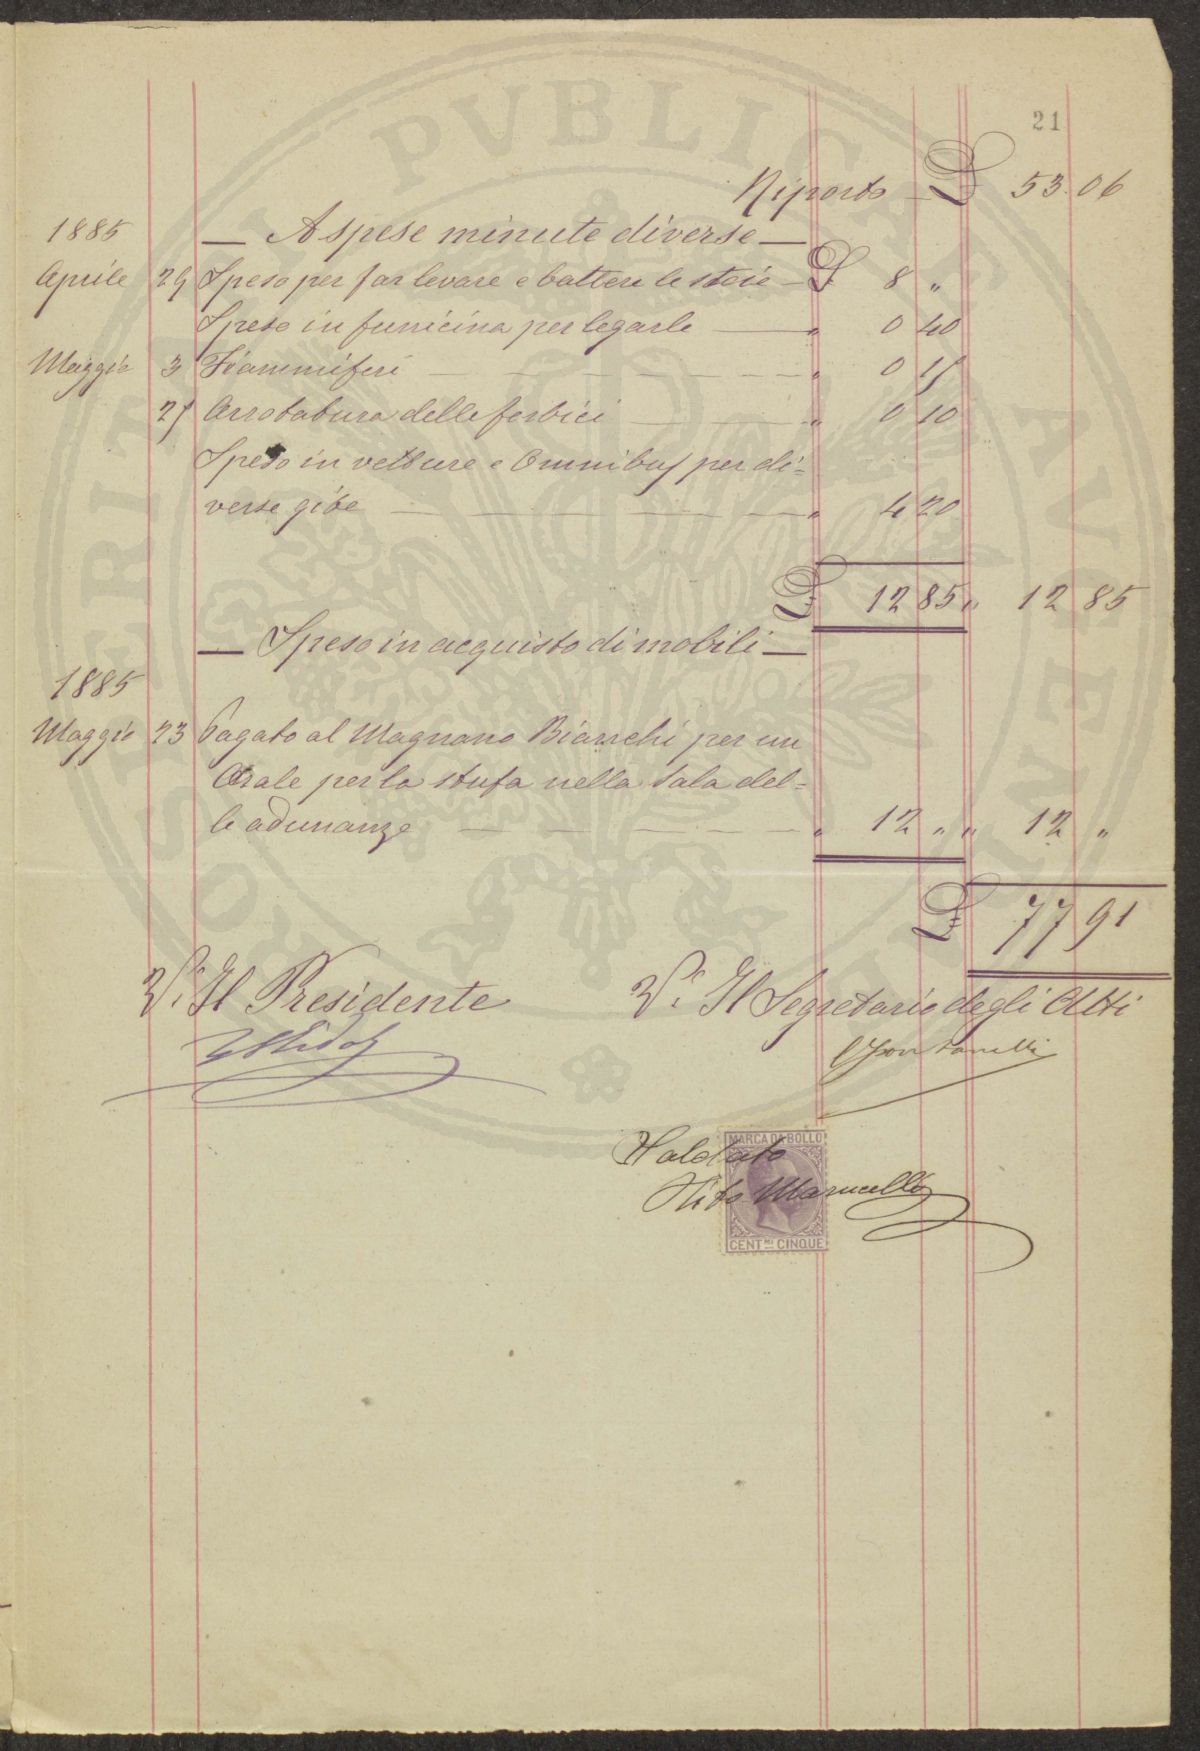 21
Riporto £ 53.06
1885
— A spese minute diverse —
Aprile 29 Speso per far levare e battere le stoie — £ 8 "
Speso in funicina per legarle — " 0 40
Maggio 3 Fiammiferi — " 0 15
25 Arrotatura delle forbici — " 0 10
Speso in vetture e Omnibus per di=
verse gite — " 4 20
£ 12 85 " 12 85
— Speso in acquisto di mobili —
1885
Maggio 23 Pagato al Magnano Bianchi per un
per la stufa nella Sala del=
le adunanze — " 12 " " 12 "
£ 77 91
V.° Il Presidente
V.° Il Segretario degli Atti
Fontanelli
Saldato
Tito Marucelli
MARCA DA BOLLO
CENT.MI CINQUE